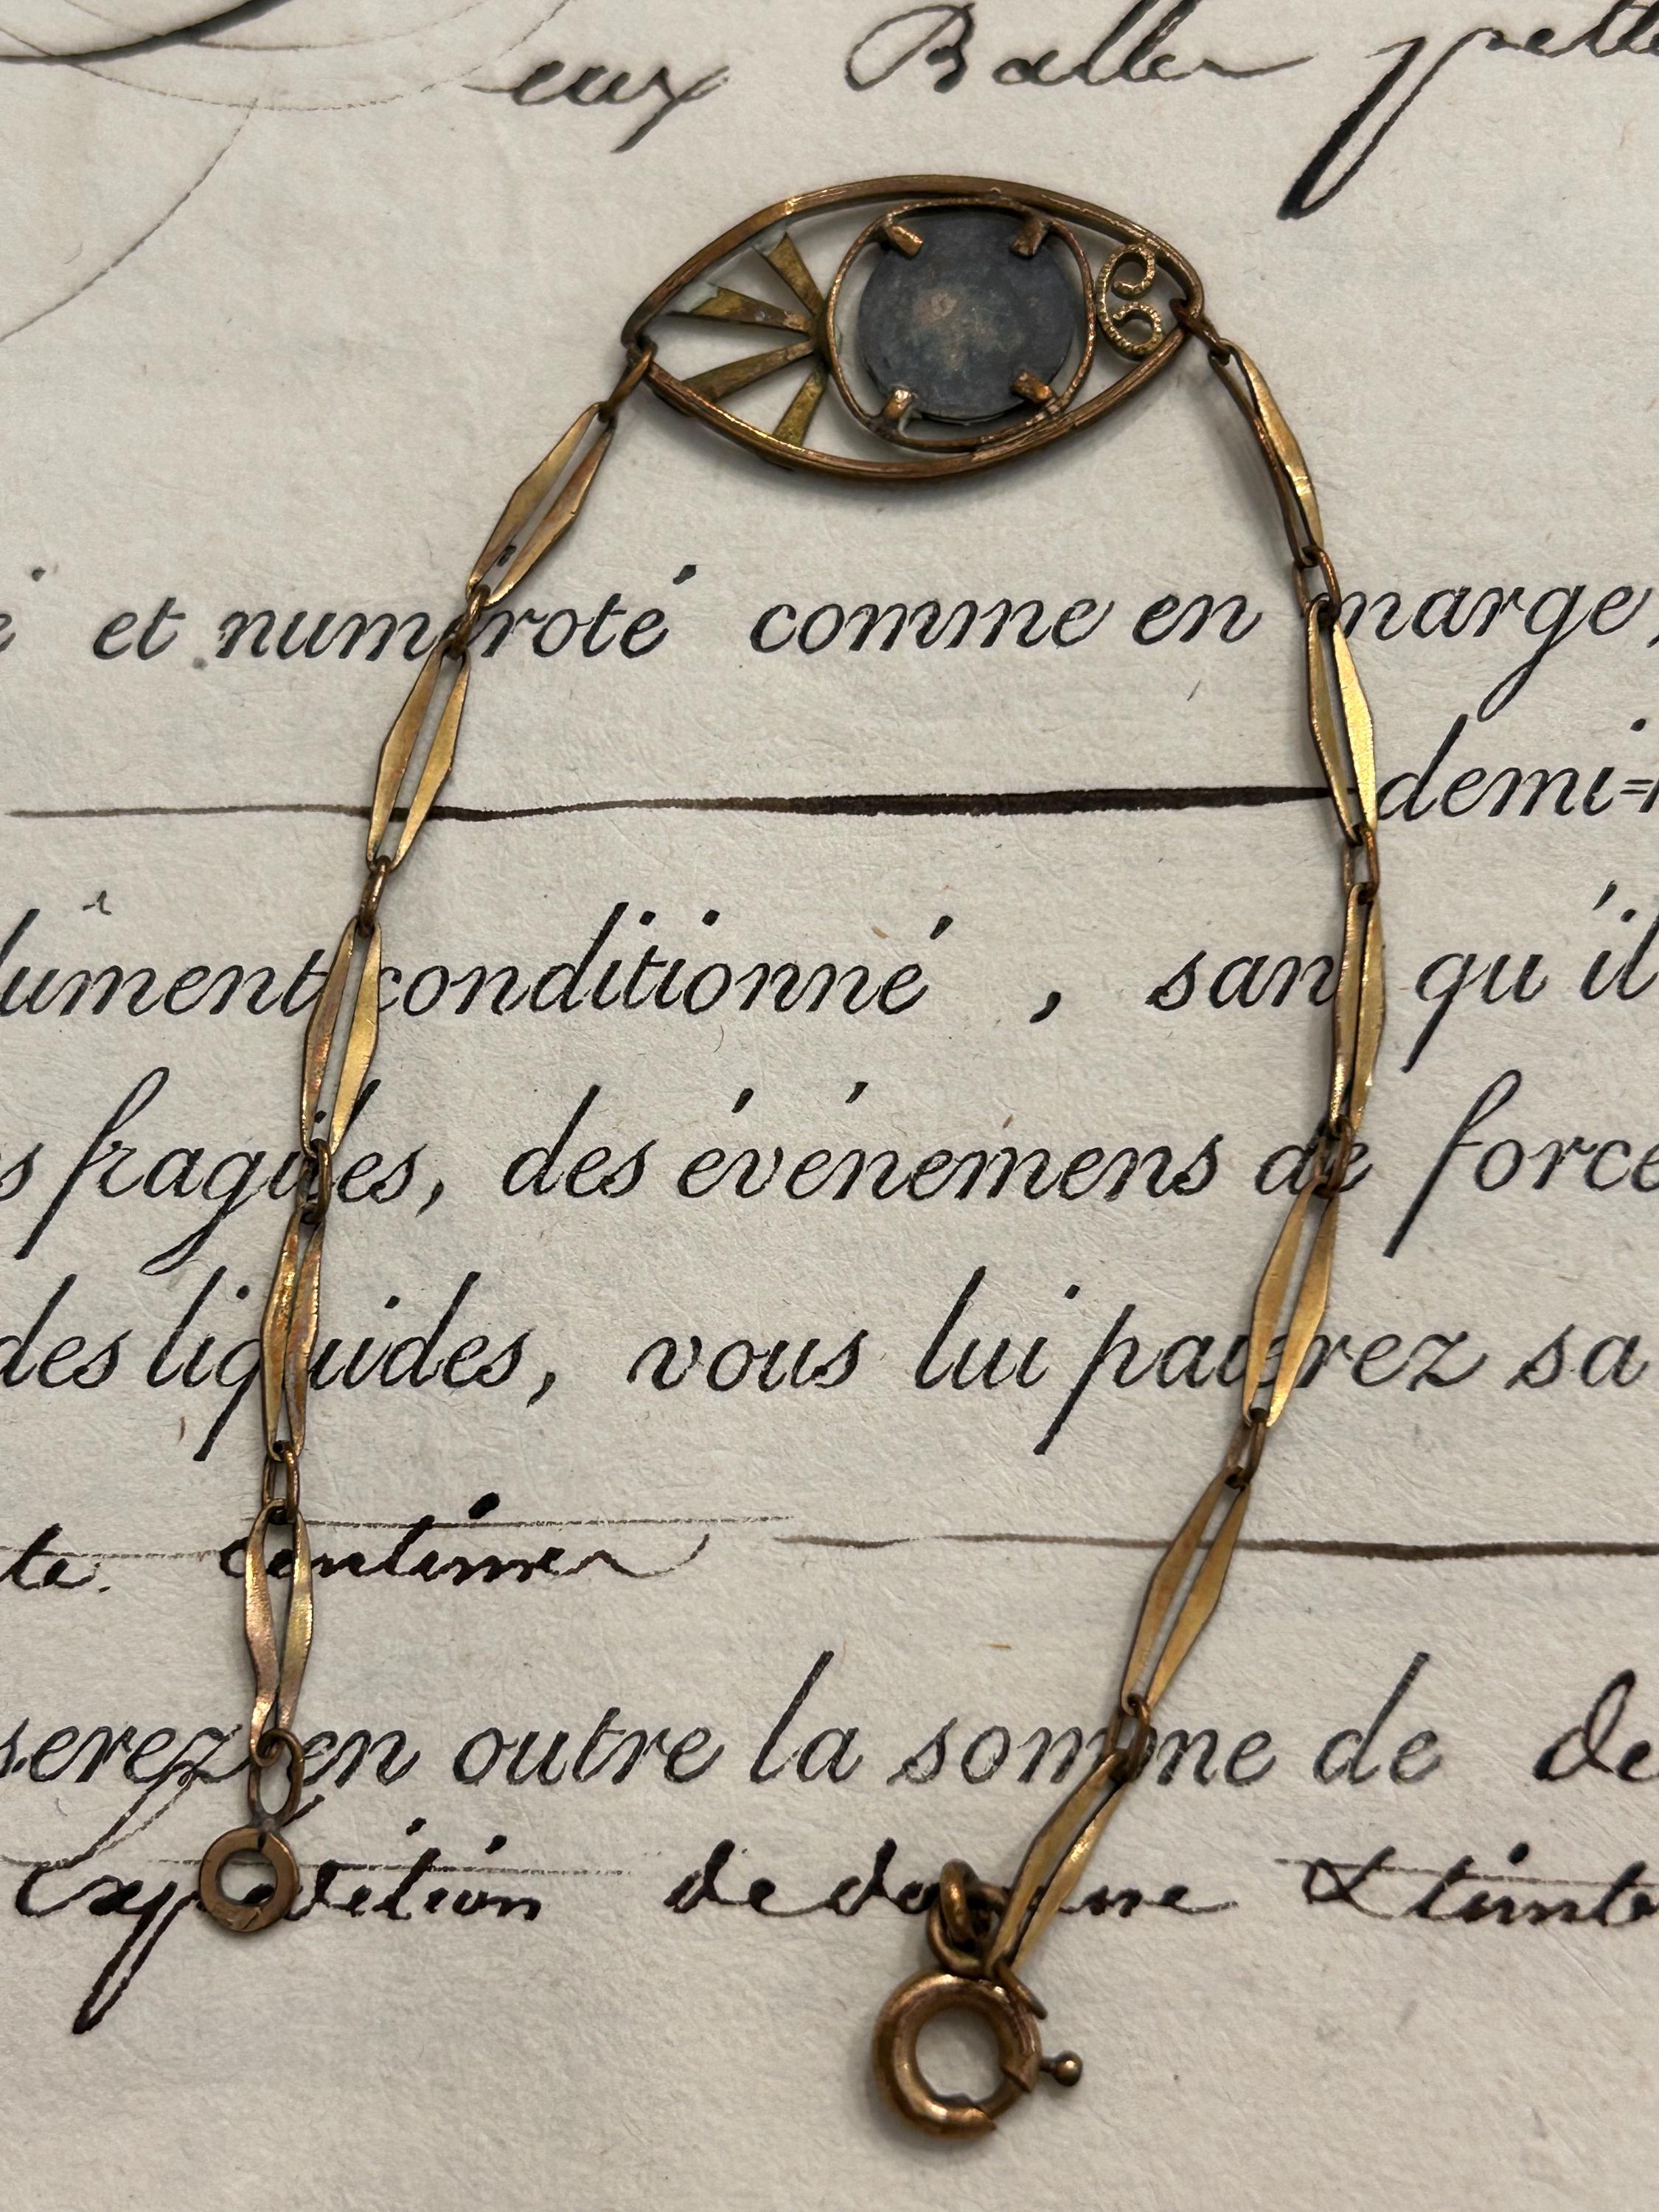 eux Balles
et numéroté comme en marge,
demi=
dument conditionné, san qu'il
s fragiles, des événemens de force
des liquides, vous lui paierez sa
te. centimes
serez en outre la somme de de
Expedition de douane & timb